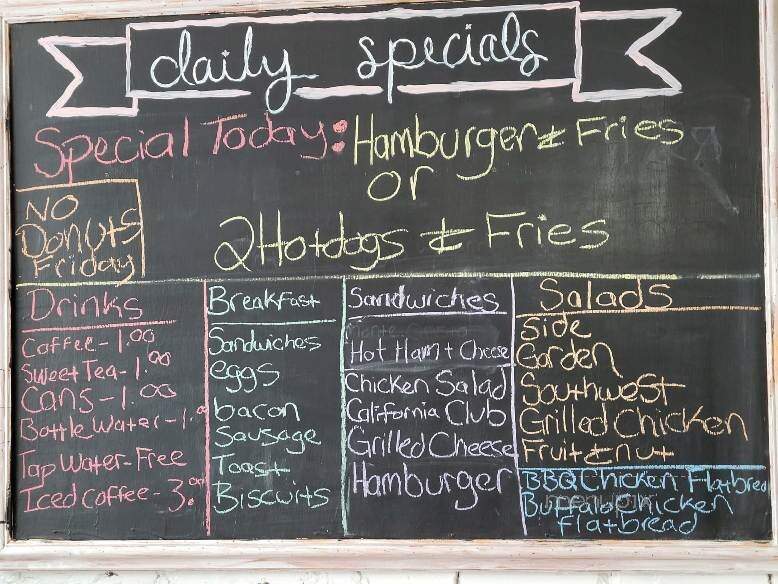 daily specials
Special Today: Hamburger & Fries
or
2 Hotdogs & Fries
NO
Donuts
Friday
Drinks
Coffee - 1.00
Sweet Tea - 1.00
Cans - 1.00
Bottle Water - 1.00
Tap Water - Free
Iced coffee - 3.00
Breakfast
Sandwiches
eggs
bacon
Sausage
Toast
Biscuits
Sandwiches
Hot Ham + Cheese
Chicken Salad
California Club
Grilled Cheese
Hamburger
Salads
Side
Garden
Southwest
Grilled Chicken
Fruit & nut
BBQ Chicken Flatbread
Buffalo Chicken
flatbread